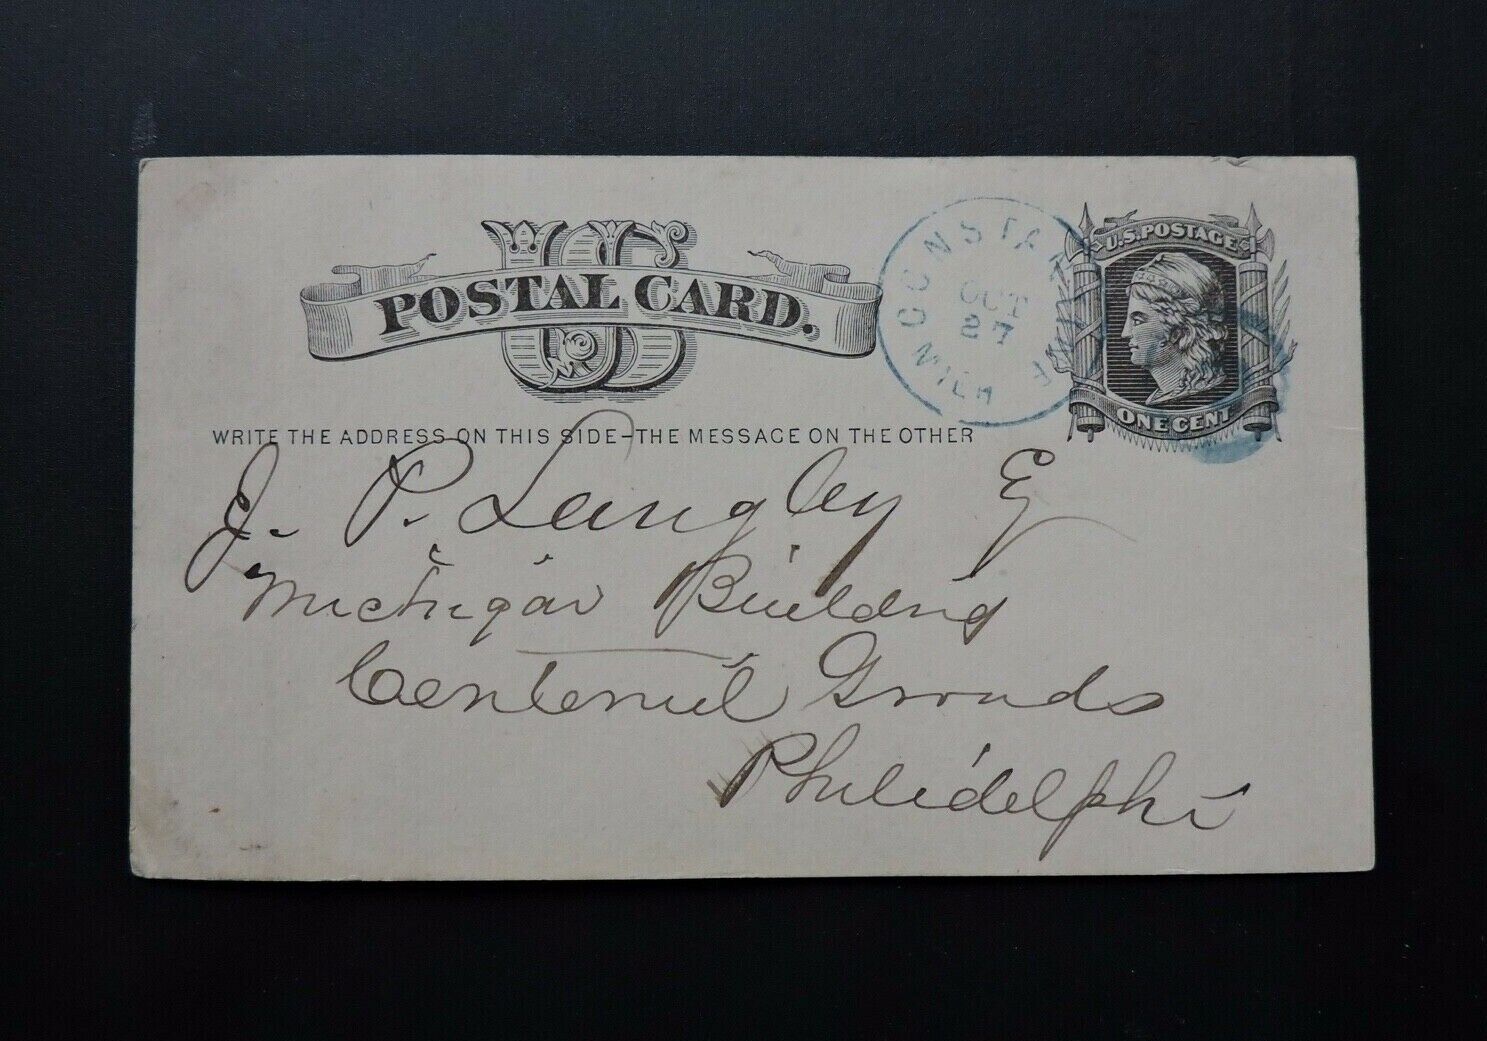 US
POSTAL CARD.
CONSTANTINE MICH
OCT
27
U.S. POSTAGE
ONE CENT
WRITE THE ADDRESS ON THIS SIDE-THE MESSAGE ON THE OTHER
J. P. Langley Esq
Michigan Building
Centenial Grounds
Philidelphi